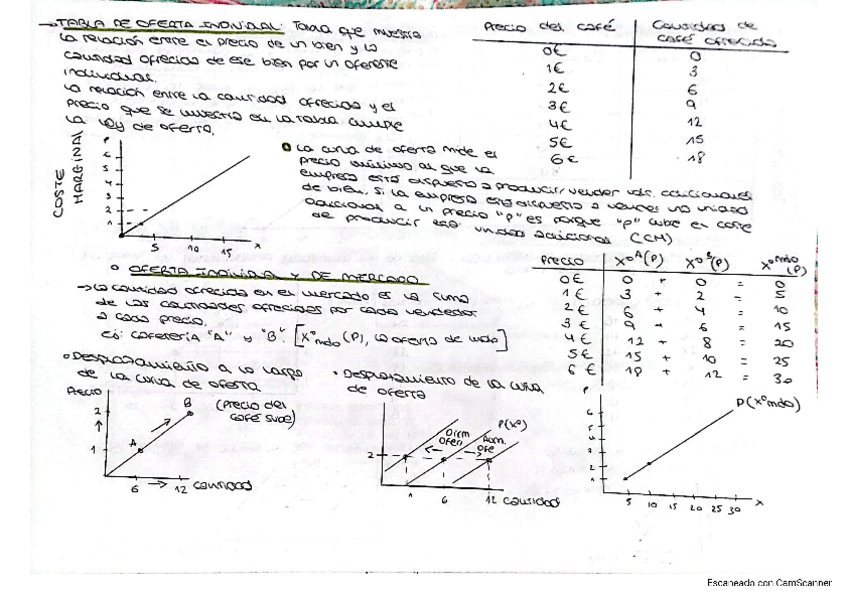 →TABLA DE OFERTA INDIVIDUAL: Tabla que muestra
la relación entre el precio de un bien y la
cantidad ofrecida de ese bien por un oferente
individual.
La relación entre la cantidad ofrecida y el
precio que se muestra en la tabla cumple
la ley de oferta.
Precio del café
Cantidad de
café ofrecida
0€ 0
1€ 3
2€ 6
3€ 9
4€ 12
5€ 15
6€ 18
COSTE
MARGINAL
P
6
5
4
3
2
1
5 10 15 x
La curva de oferta mide el
precio mínimo al que la
empresa está dispuesta a producir/vender uds. adicionales
de bien, si la empresa está dispuesta a vender una unidad
adicional a un precio "p" es porque "p" cubre el coste
de producir esa unidad adicional (CM)
o OFERTA INDIVIDUAL Y DE MERCADO
→La cantidad ofrecida en el mercado es la suma
de las cantidades ofrecidas por cada vendedor
a cada precio.
ej: cafetería "A" y "B". [X°mdo (P), la oferta de mdo]
Precio X°A(P) X°B(P) X°mdo (P)
0€ 0 + 0 = 0
1€ 3 + 2 = 5
2€ 6 + 4 = 10
3€ 9 + 6 = 15
4€ 12 + 8 = 20
5€ 15 + 10 = 25
6€ 18 + 12 = 30
o Desplazamiento a lo largo
de la curva de oferta
Precio
2
1
A
B
(Precio del
café sube)
6 → 12 cantidad
• Desplazamiento de la curva
de oferta
P(x°)
Dism.
Ofert
Aum.
Ofe
2
1 6 12 cantidad
P
P(x°mdo)
6
5
4
3
2
1
5 10 15 20 25 30 x
Escaneado con CamScanner